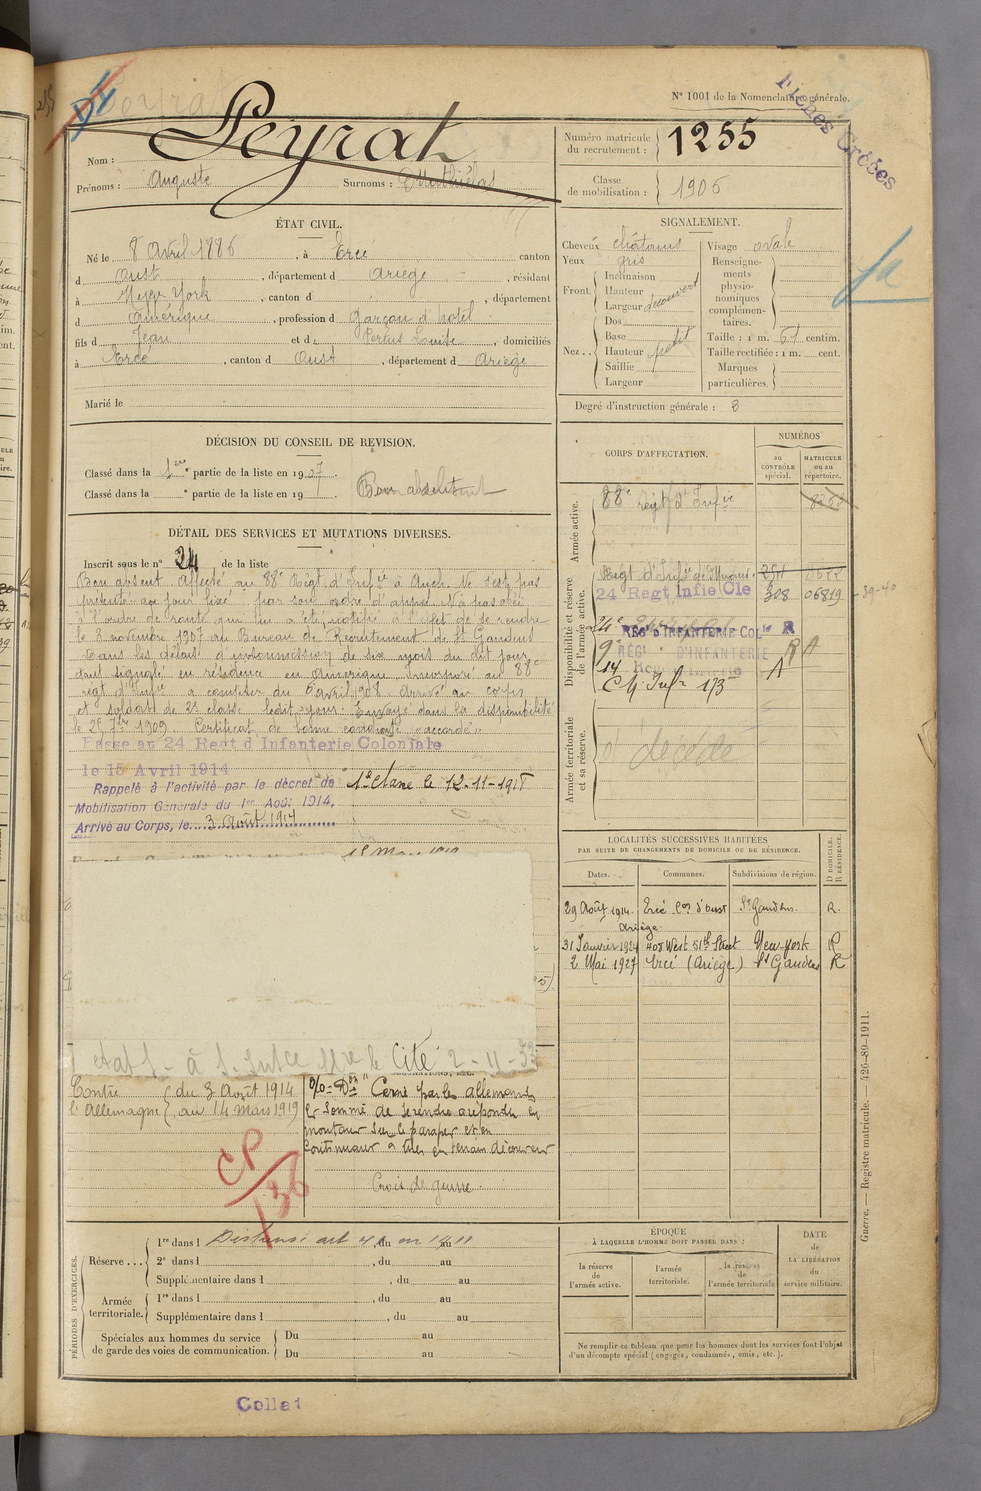 N° 1001 de la Nomenclature générale.
Fiches Créées
Peyrat
Nom :
Prénoms : Auguste Surnoms :
Numéro matricule du recrutement : 1255
Classe de mobilisation : 1906
ÉTAT CIVIL.
Né le 8 Avril 1886, à Ercé canton
d Oust, département d Ariège, résidant
à New York, canton d , département
d Amérique, profession d garçon d'hôtel
fils d Jean et d Louise, domiciliés
à Ercé, canton d Oust, département d Ariège
Marié le
SIGNALEMENT.
Cheveux châtains
Yeux gris
Front.
Inclinaison
Hauteur
Largeur découvert
Nez..
Dos
Base
Hauteur petit
Saillie
Largeur
Visage ovale
Renseignements physionomiques complémentaires.
Taille : 1 m. 61 centim.
Taille rectifiée : 1 m. cent.
Marques particulières.
Degré d'instruction générale : 3
DÉCISION DU CONSEIL DE REVISION.
Classé dans la 1ere partie de la liste en 1907.
Classé dans la e partie de la liste en 19 .
Bon absent
DÉTAIL DES SERVICES ET MUTATIONS DIVERSES.
Inscrit sous le n° 24 de la liste
Bon absent. Affecté au 88e Régt d'Infie à Auch. Ne s'est pas
présenté au jour fixé par son ordre d'appel. N'a pas obéi
à l'ordre de route qui lui a été notifié à l'effet de se rendre
le 3 novembre 1907 au Bureau de Recrutement de St Gaudens
Dans les délais d'insoumission de six mois du dit jour
étant signalé en résidence en Amérique. Incorporé au 88e
régt d'Infie à compter du 6 avril 1908. Arrivé au corps
et soldat de 2e classe ledit jour. Envoyé dans la disponibilité
le 25 7bre 1909. Certificat de bonne conduite "accordé".
Passé au 24 Regt d Infanterie Coloniale
le 15 Avril 1914
Rappelé à l'activité par le décret de
Mobilisation Générale du 1er Août 1914.
Arrivé au Corps, le 3 août 1914
1e classe le 12-11-1915
CORPS D'AFFECTATION.
NUMÉROS
au CONTRÔLE spécial.
MATRICULE ou au répertoire.
Armée active.
88e régt d'Infie
Disponibilité et réserve de l'armée active.
24 Regt Infie Cle 308 06819
24e RÉGt D'INFANTERIE COLle R
9e RÉGt D'INFANTERIE R A
14 A
173
Armée territoriale et sa réserve.
décédé
LOCALITÉS SUCCESSIVES HABITÉES
PAR SUITE DE CHANGEMENTS DE DOMICILE OU DE RÉSIDENCE.
Dates. Communes. Subdivisions de région. D DOMICILE. R RÉSIDENCE.
29 Août 1914. Ercé Con d'Oust St Gaudens. R.
Ariège
31 Janvier 1924 408 West 51th Street New-York R
2 Mai 1927 Ercé (Ariège) St Gaudens R
Cité
Contre l'Allemagne
du 3 Août 1914
au 14 Mars 1919
Cerné par les allemands
et sommé de se rendre a répondu en
montant sur le parapet et en
continuant à tirer en terrain découvert
Croix de guerre
CP
136
PÉRIODES D'EXERCICES.
Réserve...
1re dans l Dispensé art , du en 1911 au
2e dans l , du au
Supplémentaire dans l , du au
Armée territoriale.
1re dans l , du au
Supplémentaire dans l , du au
Spéciales aux hommes du service de garde des voies de communication.
Du au
Du au
ÉPOQUE
À LAQUELLE L'HOMME DOIT PASSER DANS :
la réserve de l'armée active.
l'armée territoriale.
la réserve de l'armée territoriale
DATE de LA LIBÉRATION du service militaire.
Ne remplir ce tableau que pour les hommes dont les services font l'objet
d'un décompte spécial (engagés, condamnés, omis, etc.).
Guerre. — Registre matricule. — 426-89-1911.
Collat